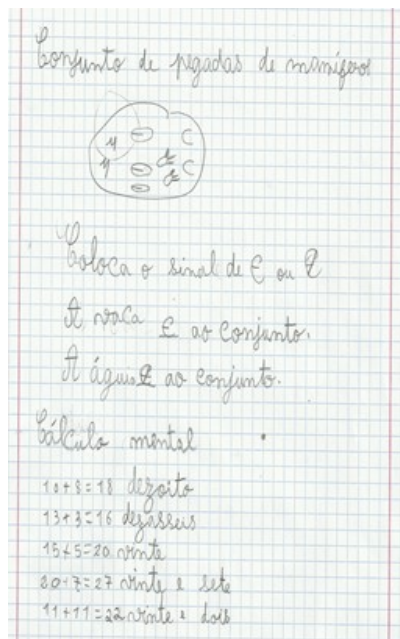 Conjunto de pegadas de mamíferos
Coloca o sinal de ∈ ou ∉
A vaca ∈ ao conjunto.
A águia ∉ ao conjunto.
Cálculo mental
10+8=18 dezoito
13+3=16 dezasseis
15+5=20 vinte
20+7=27 vinte e sete
11+11=22 vinte e dois